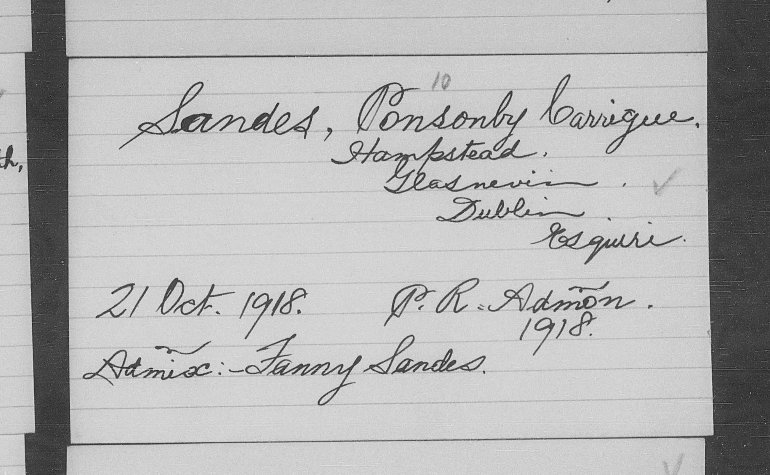 10
Sandes, Ponsonby Carrigue.
Hampstead.
Glasnevin.
Dublin
Esquire.
21 Oct. 1918. P. R. Admõn.
1918.
Admix:- Fanny Sandes.
th,